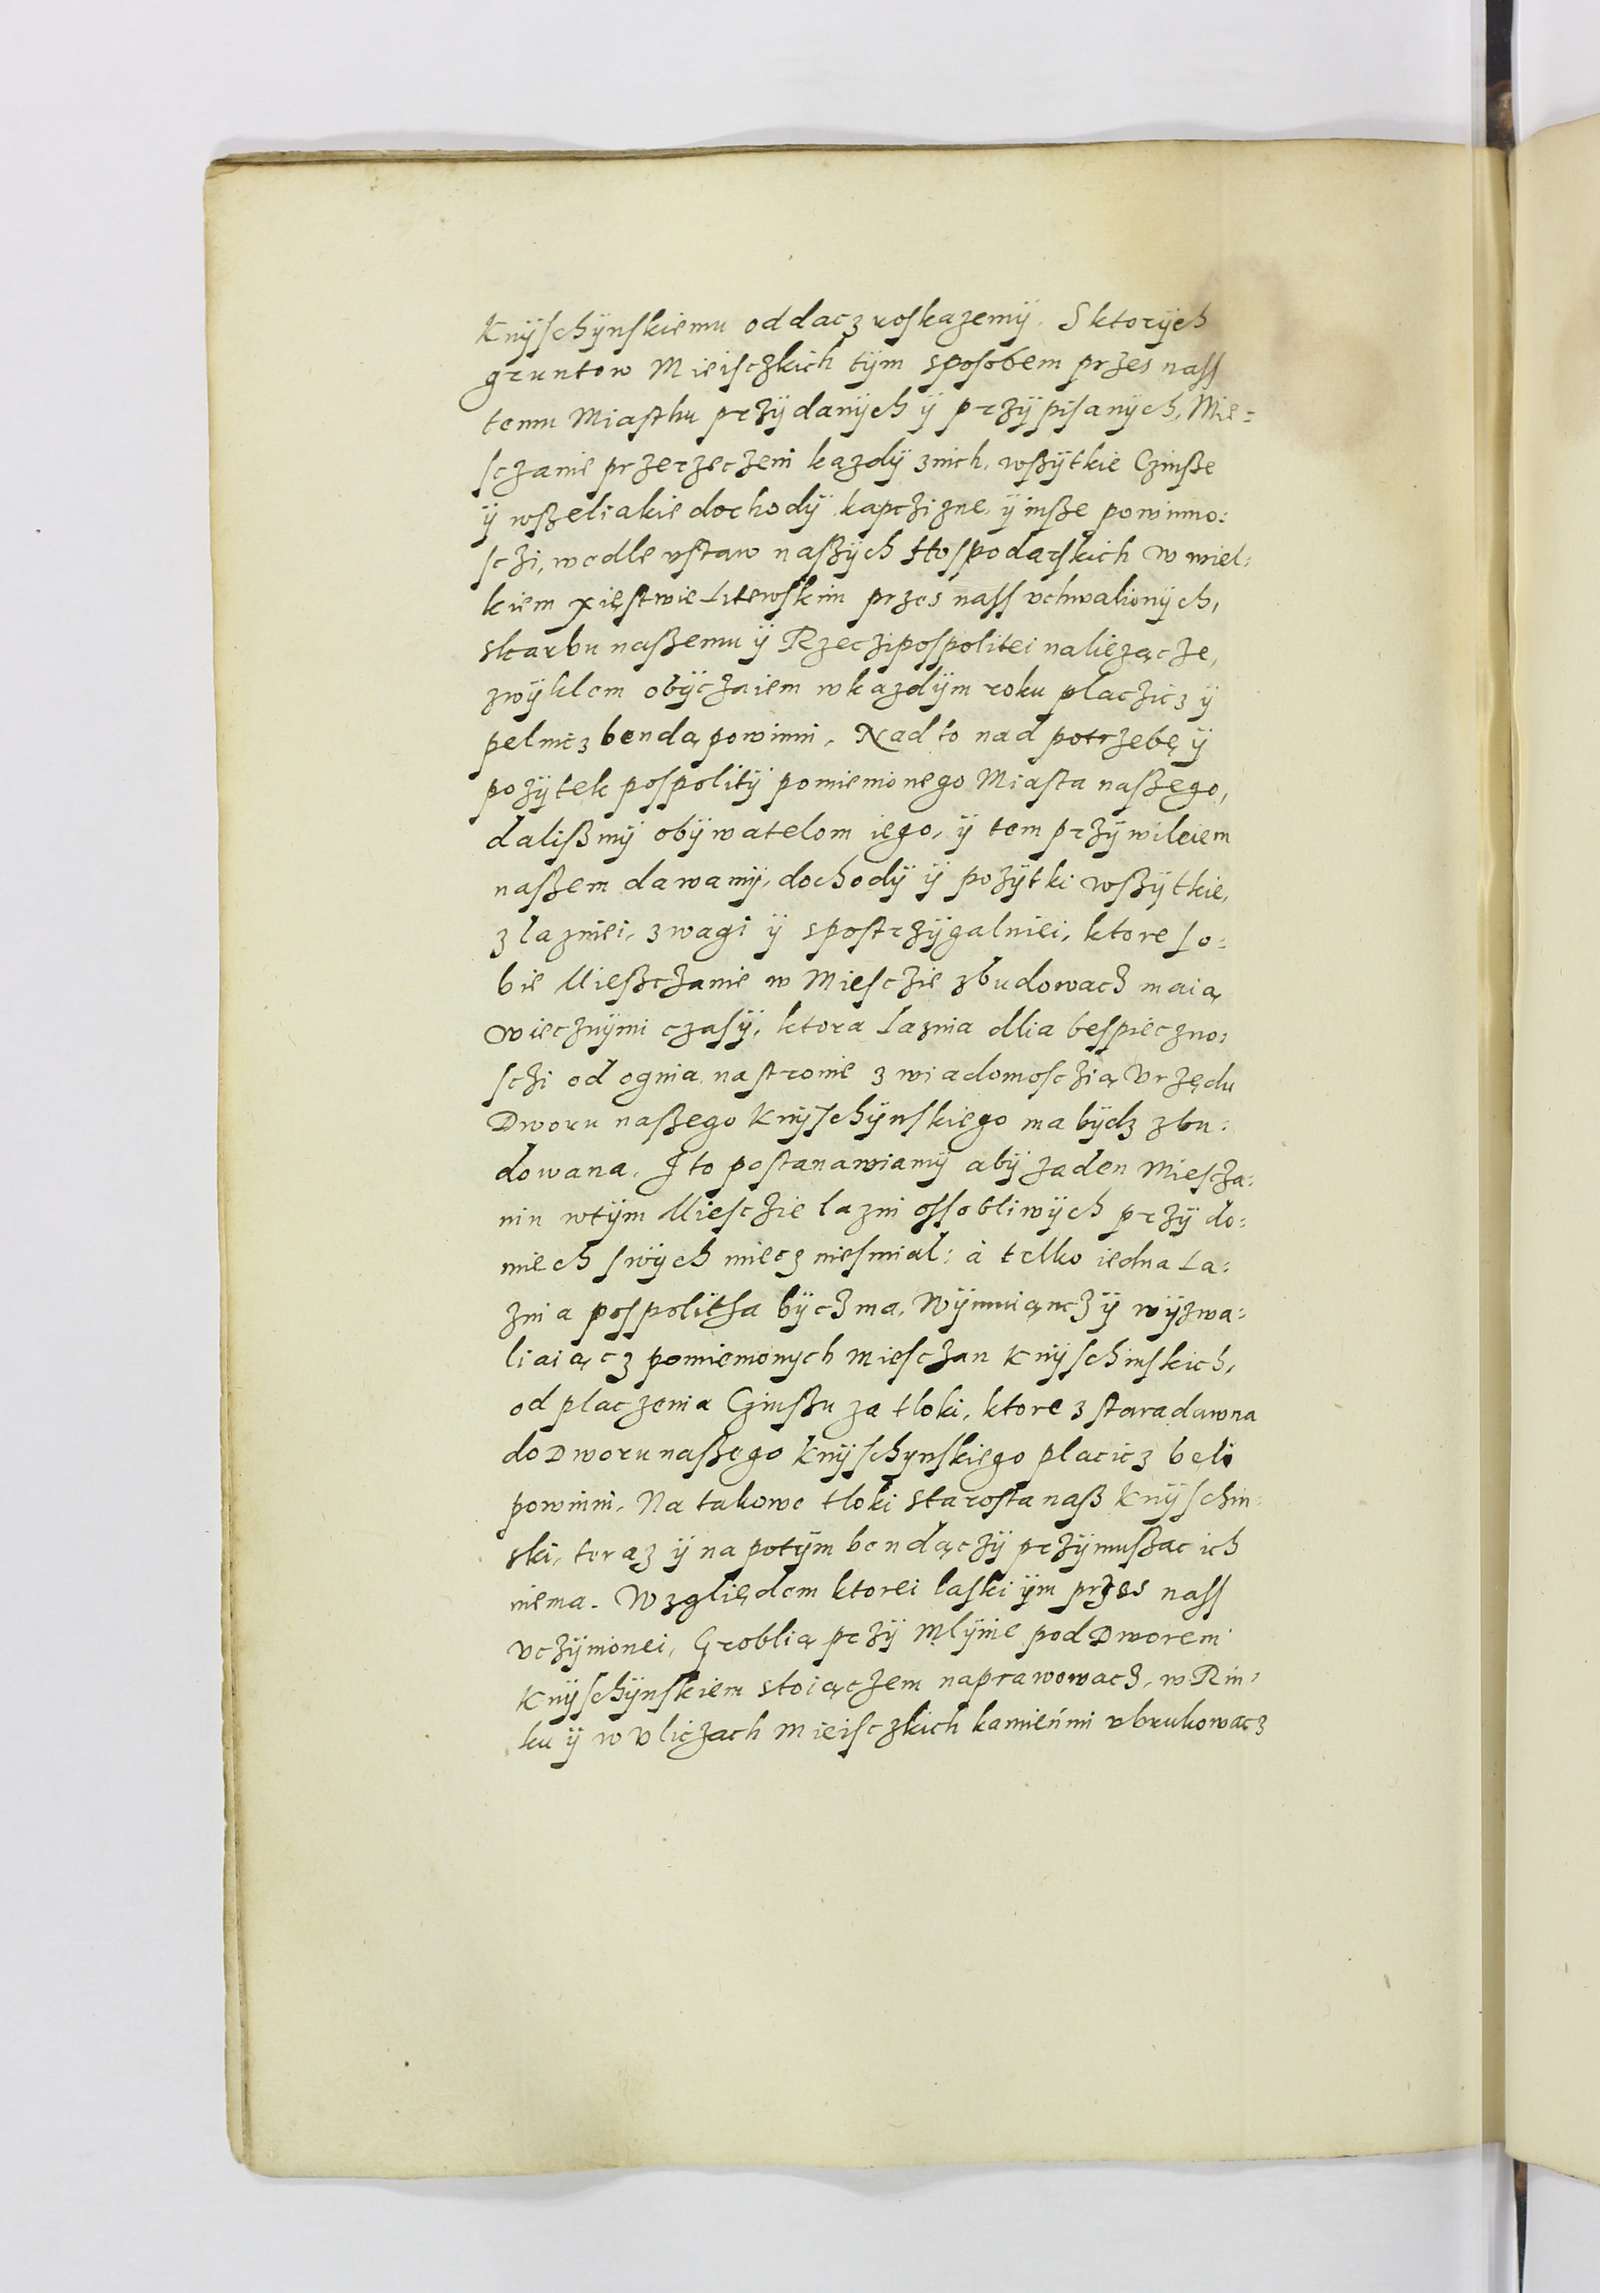 Knÿschÿnskiemu oddacz roskazemÿ. S ktorÿch
gruntow Mieisczkich tÿm sposobem przes nass
temu Miasthu przÿdanÿch ÿ przÿpisanÿch, Mie=
sczanie przerzeczeni kazdÿ znich, wszÿtkie Czinsze
ÿ wszeliakie dochodÿ kapczizne, ÿ insze powinno=
sczi, wedle ustaw naszÿch Hospodarskich w wiel=
kiem xięstwie Litewskim przes nass uchwalionÿch,
skarbu naszemu ÿ Rzeczipospolitei naliezącze,
zwÿklem obÿczaiem w kazdÿm roku placzicz ÿ
pelnicz bendą powinni. Nad to nad potrzebę ÿ
pozÿtek pospolitÿ pomienionego Miasta naszego,
daliszmÿ obÿwatelom iego, ÿ tem przÿwileiem
naszem dawamÿ, dochodÿ ÿ pozÿtki wszÿtkie,
z laznici, z wagi ÿ spostrzÿgalniei, ktore so=
bie Mieszczanie w Miesczie zbudowacz maią
wiecznÿmi czasÿ, ktora Laznia dlia bespieczno=
sczi od ognia, na stronie z wiadomosczią Urzędu
Dworu naszego Knÿschÿnskiego ma bÿdz zbu=
dowana. I to postanawiamÿ abÿ zaden Miescza=
nin wtÿm Miesczie lazni ossobliwÿch przÿ do=
miech swÿch miecz niesmial: à telko iedna La=
znia pospolitha bÿcz ma. Wÿnniąncz ÿ wÿzwa=
liaiącz pomienionych Miesczan Knÿschinskich,
od placzenia Czinszu za tloki, ktore z staradawna
do Dworu naszego Knÿschynskiego placicz beli
powinni. Na takowe tloki starosta nasz Knÿschin=
ski, teraz ÿ na potÿm bendączÿ przÿmuszac ich
niema. Wzgliędem ktorei laski ÿm przes nass
uczÿnionei, Groblią przÿ Mlÿnie pod Dworem
Knÿschÿnskiem stoiączem naprawowacz, w Rin=
ku ÿ w uliczach Mieisczkich kamieńmi ubrukowacz